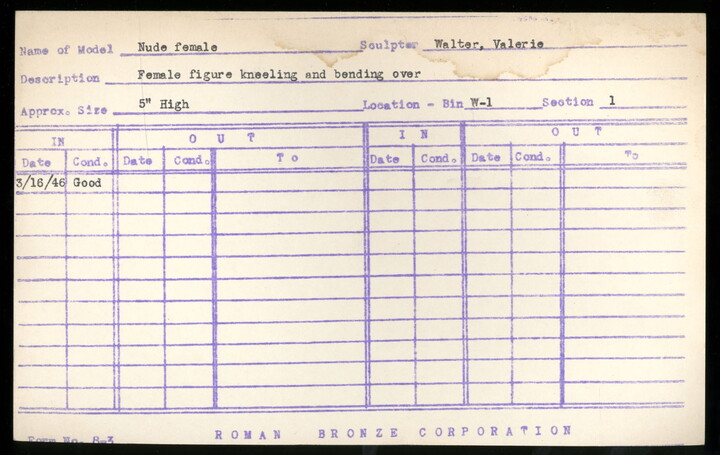 Name of Model Nude female Sculptor Walter, Valerie
Description Female figure kneeling and bending over
Approx. Size 5" High Location - Bin W-1 Section 1
IN OUT IN OUT
Date Cond. Date Cond. To Date Cond. Date Cond. To
3/16/46 Good
Form No. 8-3 ROMAN BRONZE CORPORATION